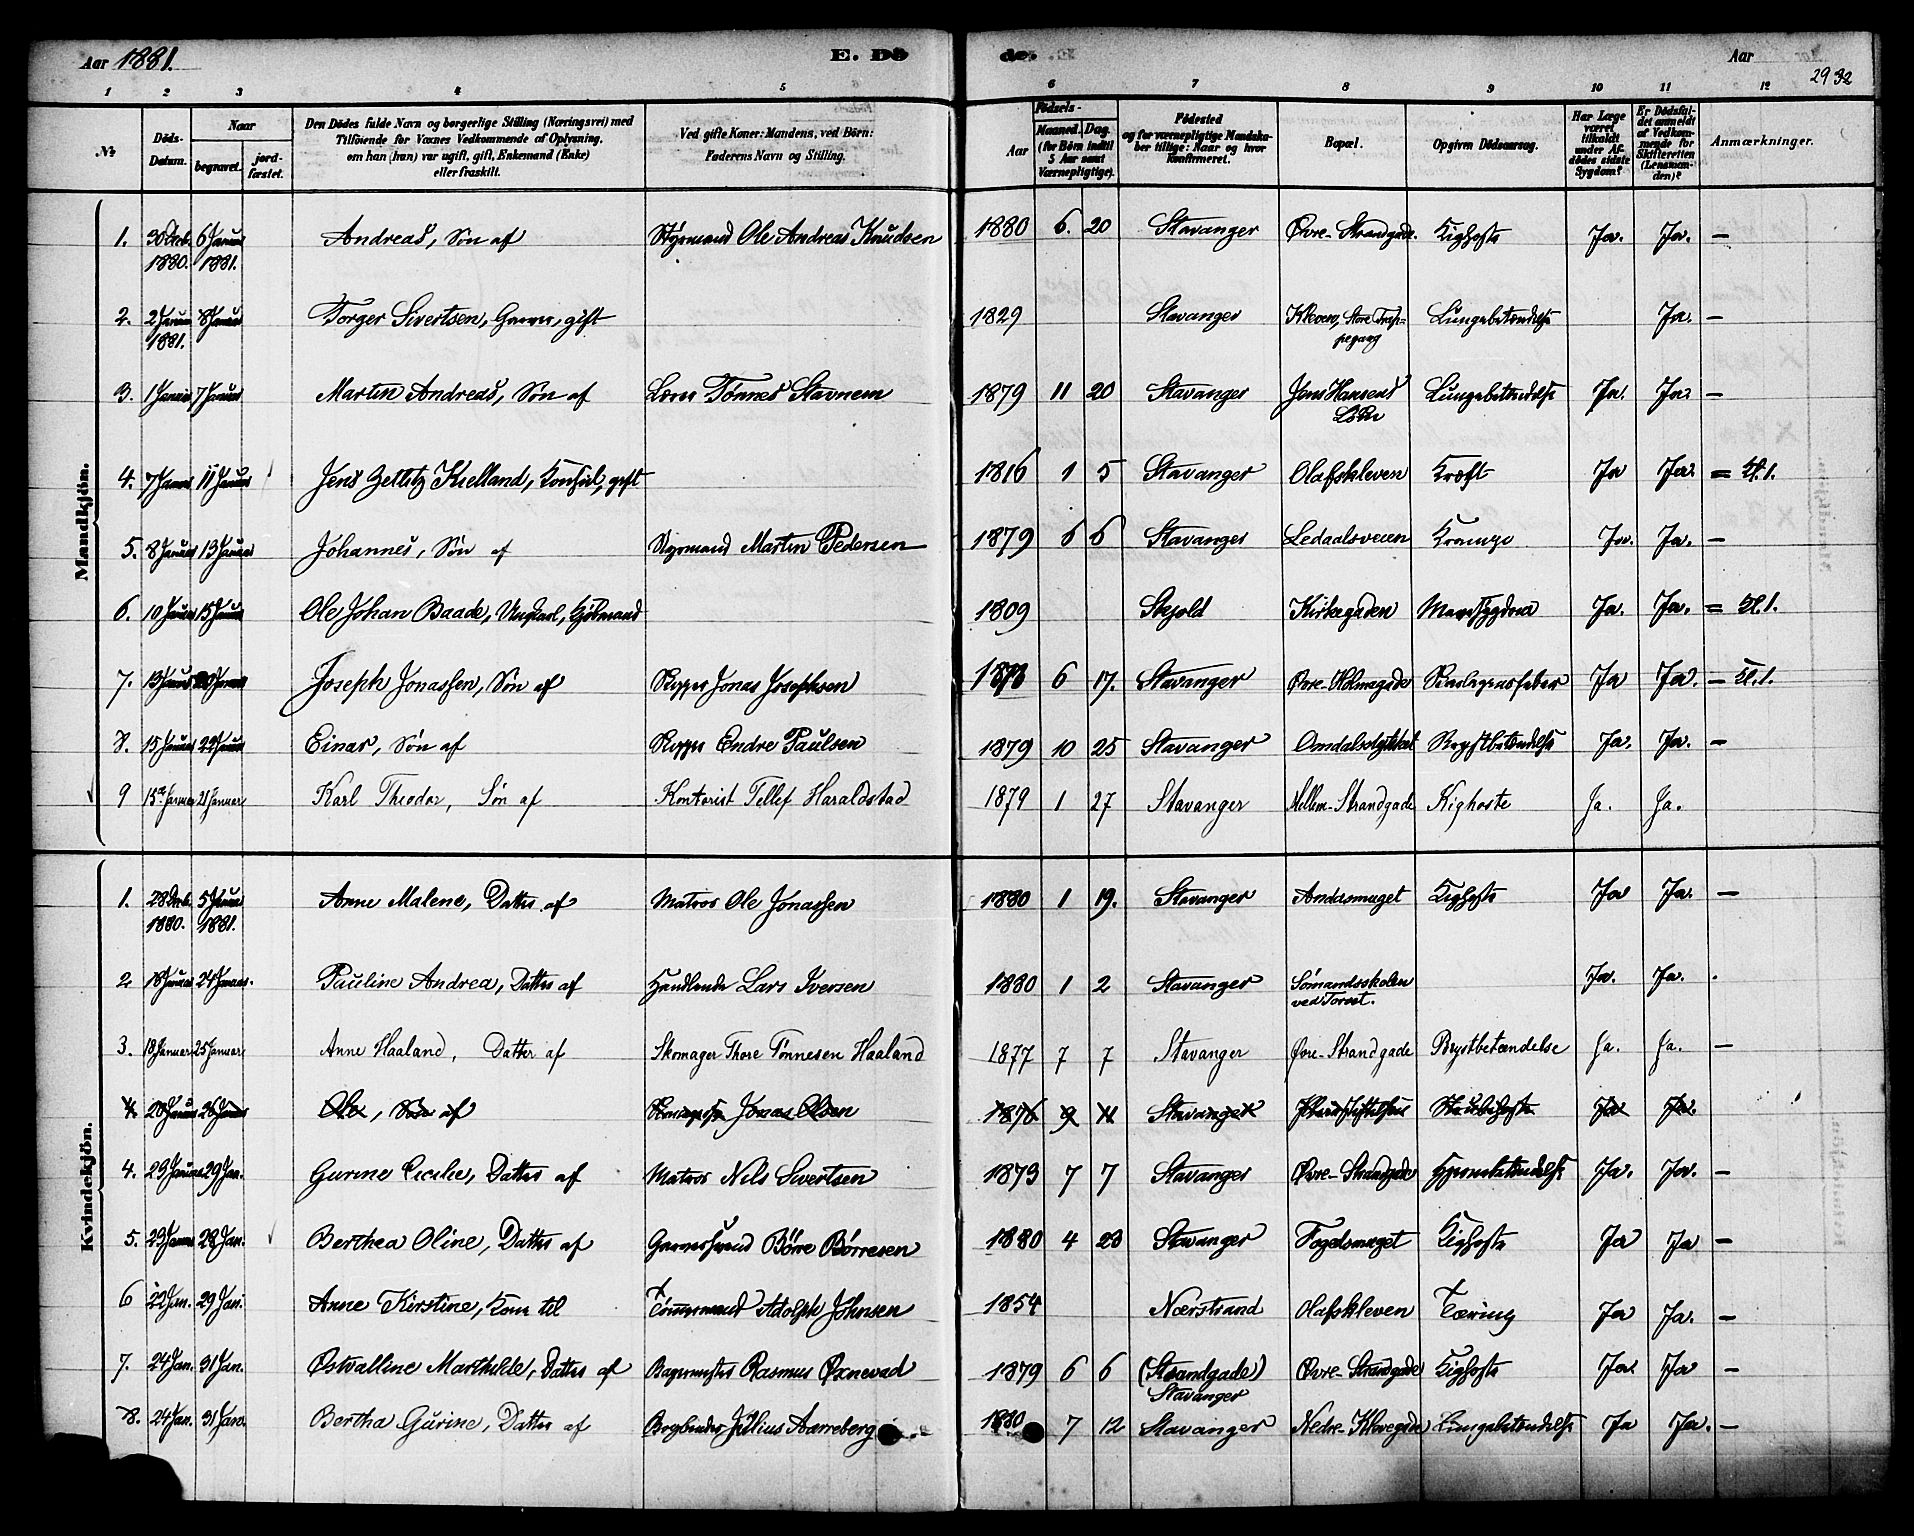 Aar 1881.
E. Dö
de.
Aar
29 32
1 2 3 4 5 6 7 8 9 10 11 12
No
Döds-Datum.
Naar
begravet.
jord-fæstet.
Den Dödes fulde Navn og borgerlige Stilling (Næringsvei) med
Tilföiende for Voxnes Vedkommende af Oplysning,
om han (hun) var ugift, gift, Enkemand (Enke)
eller fraskilt.
Ved gifte Koner: Mandens, ved Börn:
Faderens Navn og Stilling.
Födsels-
Aar
Maaned. Dag.
(for Börn indtil
5 Aar samt
Værnepligtige).
Födested
og for værnepligtige Mandska-
ber tillige: Naar og hvor
Konfirmeret.
Bopæl.
Opgiven Dödsaarsag.
Har Læge
været
tilkaldt
under Af-
dödes sidste
Sygdom?
Er Dödsfal-
det anmeldt
af Vedkom-
mende for
Skifteretten
(Lensman-
den)?
Anmærkninger.
Mandkjön.
1. 30 Decb. 1880. 6 Januar 1881. Andreas, Søn af Styrmand Ole Andreas Knudsen 1880 6. 20 Stavanger Øvre-Strandgade. Kighoste Ja. Ja. —
2. 2 Januar 1881. 8 Januar Torger Sivertsen, Garver, gift 1829 Stavanger Kleven, Store Trap=
pegang Lungebetændelse Ja. —
3. 1 Januar 7 Januar Martin Andreas, Søn af Lærer Tønnes Stavnem 1879 11 20 Stavanger Jens Hansens
Løkke Lungebetændelse Ja. Ja. —
4. 7 Januar 11 Januar Jens Zetlitz Kielland, Konsul, gift 1816 1 5 Stavanger Olafskleven Kræft Ja Ja. = Kl. 1.
5. 8 Januar 13 Januar Johannes, Søn af Styrmand Martin Pedersen 1879 6 6 Stavanger Ledaalsveien Krampe Ja. Ja. —
6. 10 Januar 15 Januar Ole Johan Baade, Ungkarl, 1809 Skjold Kirkegaden Mavesygdom Ja. Ja. = Kl. 1.
7. 13 Januar Januar Joseph Jonassen, Søn af Skipper Jonas Josephsen 6 17. Stavanger Øvre-Holmegade Skarlagensfeber Ja Ja. — Kl. 1.
8. 15 Januar 22 Januar Einar, Søn af Skipper Endre Paulsen 1879 10 25 Stavanger Brystbetændelse Ja. Ja. —
9 15de Januar 21 Januar Karl Theodor, Søn af Kontorist Tellef Haraldstad 1879 1 27 Stavanger Mellem-Strandgade Kighoste Ja. Ja.
Kvindekjön.
1. 28 Decb. 1880. 5 Januar 1881. Anne Malene, Datter af Matros Ole Jonassen 1880 1 19. Stavanger Andasmuget Kighoste Ja Ja. —
2 18 Januar 24 Januar. Pauline Andrea, Datter af Handlende Lars Iversen 1880 1 2 Stavanger Sømandsskolen
ved Torvet. Ja. Ja.
3. 18 Januar 25 Januar Anne Haaland, Datter af Skomager Thore Tønnesen Haaland 1877 7 7 Stavanger Øvre-Strandgade Brystbetændelse Ja. Ja. —
4. 20 Januar 26 Januar Ole, Søn af Jonas Olsen 1876 9 11 Stavanger Strubehoste Ja Ja.
4. 23 Januar 29 Jan. Gurine Cecilie, Datter af Matros Nils Sivertsen 1879 7 7 Stavanger Øvre-Strandgade Hjernebetændelse Ja. Ja. —
5. 23 Januar 28 Jan. Berthea Oline, Datter af Garversvend Børre Børresen 1880 4 23 Stavanger Fogedsmuget Kighoste Ja Ja —
6 22 Jan. 29 Jan. Anne Kirstine, Kone til Tømmermand Adolph Johnsen 1854 Nærstrand Olafskleven Tæring Ja Ja. —
7. 24 Jan. 31 Jan. Østvalline Marthilde, Datter af Bagermester Rasmus Øxnevad 1879 6 6 (Strandgade)
Stavanger Øvre-Strandgade Kighoste Ja. Ja —
8. 24 Jan. 31 Jan. Bertha Gurine, Datter af Bogbinder Julius Aarreberg 1880 7 12 Stavanger Nedre-Klevegade Lungebetændelse Ja Ja. —